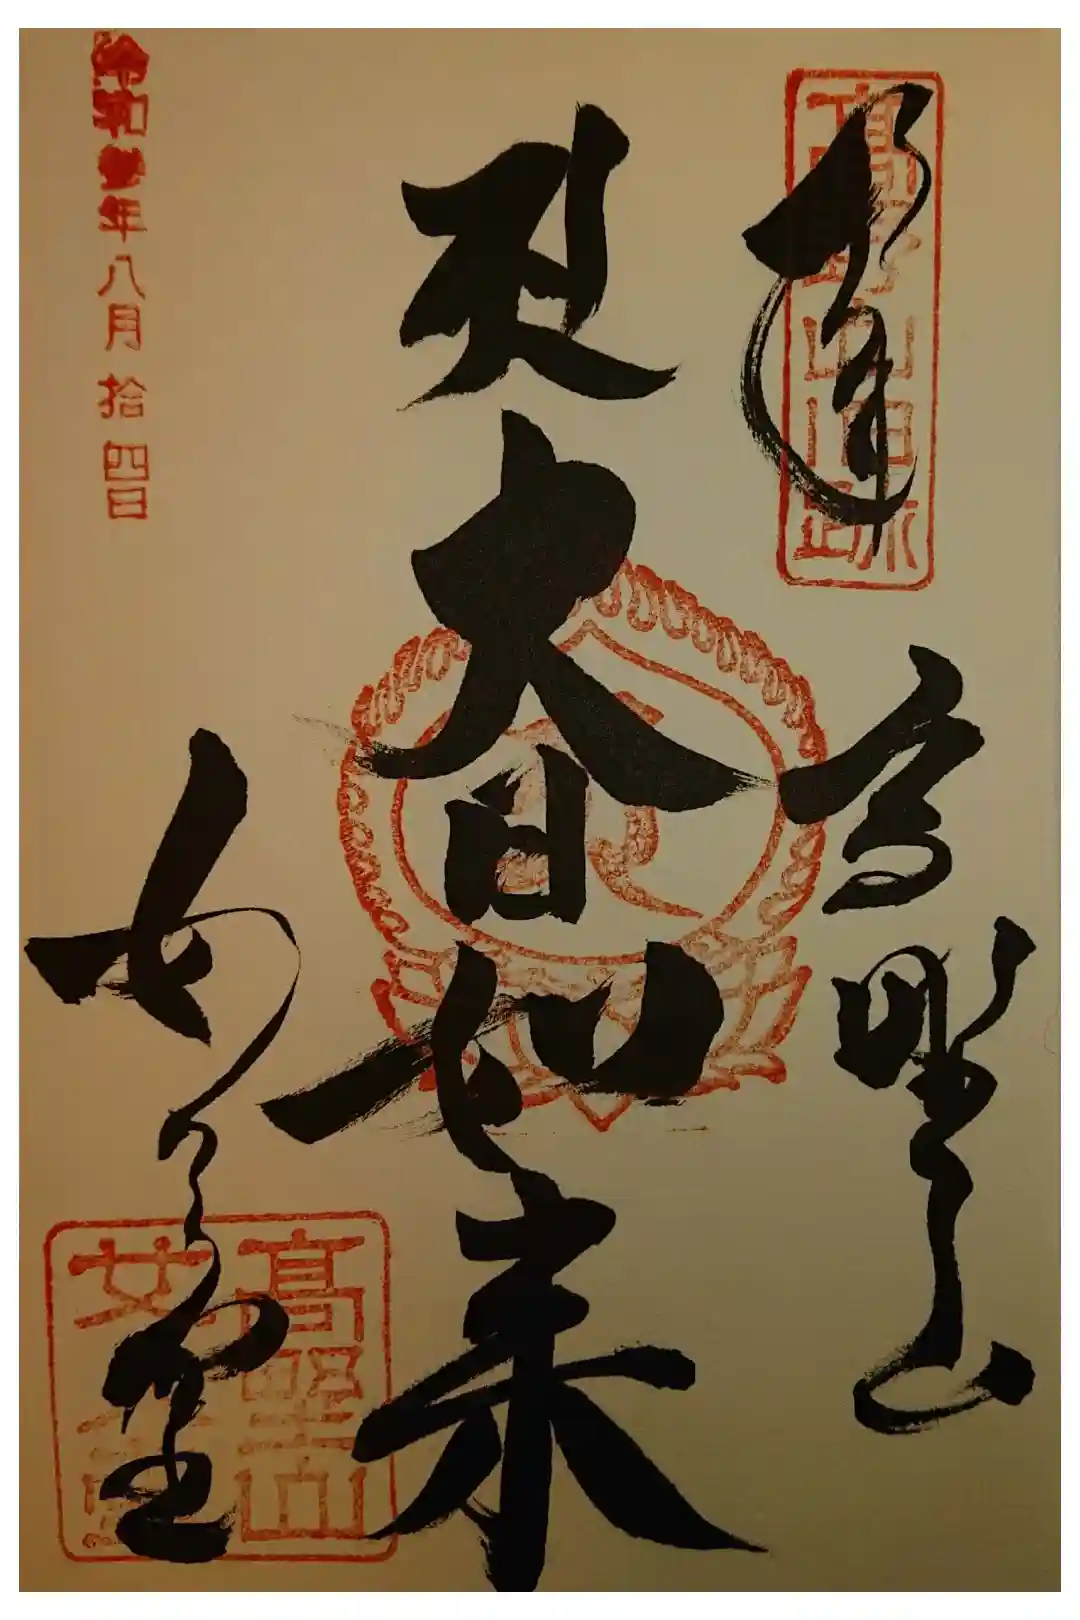 奉拝
高野山旧跡
高野山
大日如来
女人堂
高野山
女人堂
令和参年八月拾四日